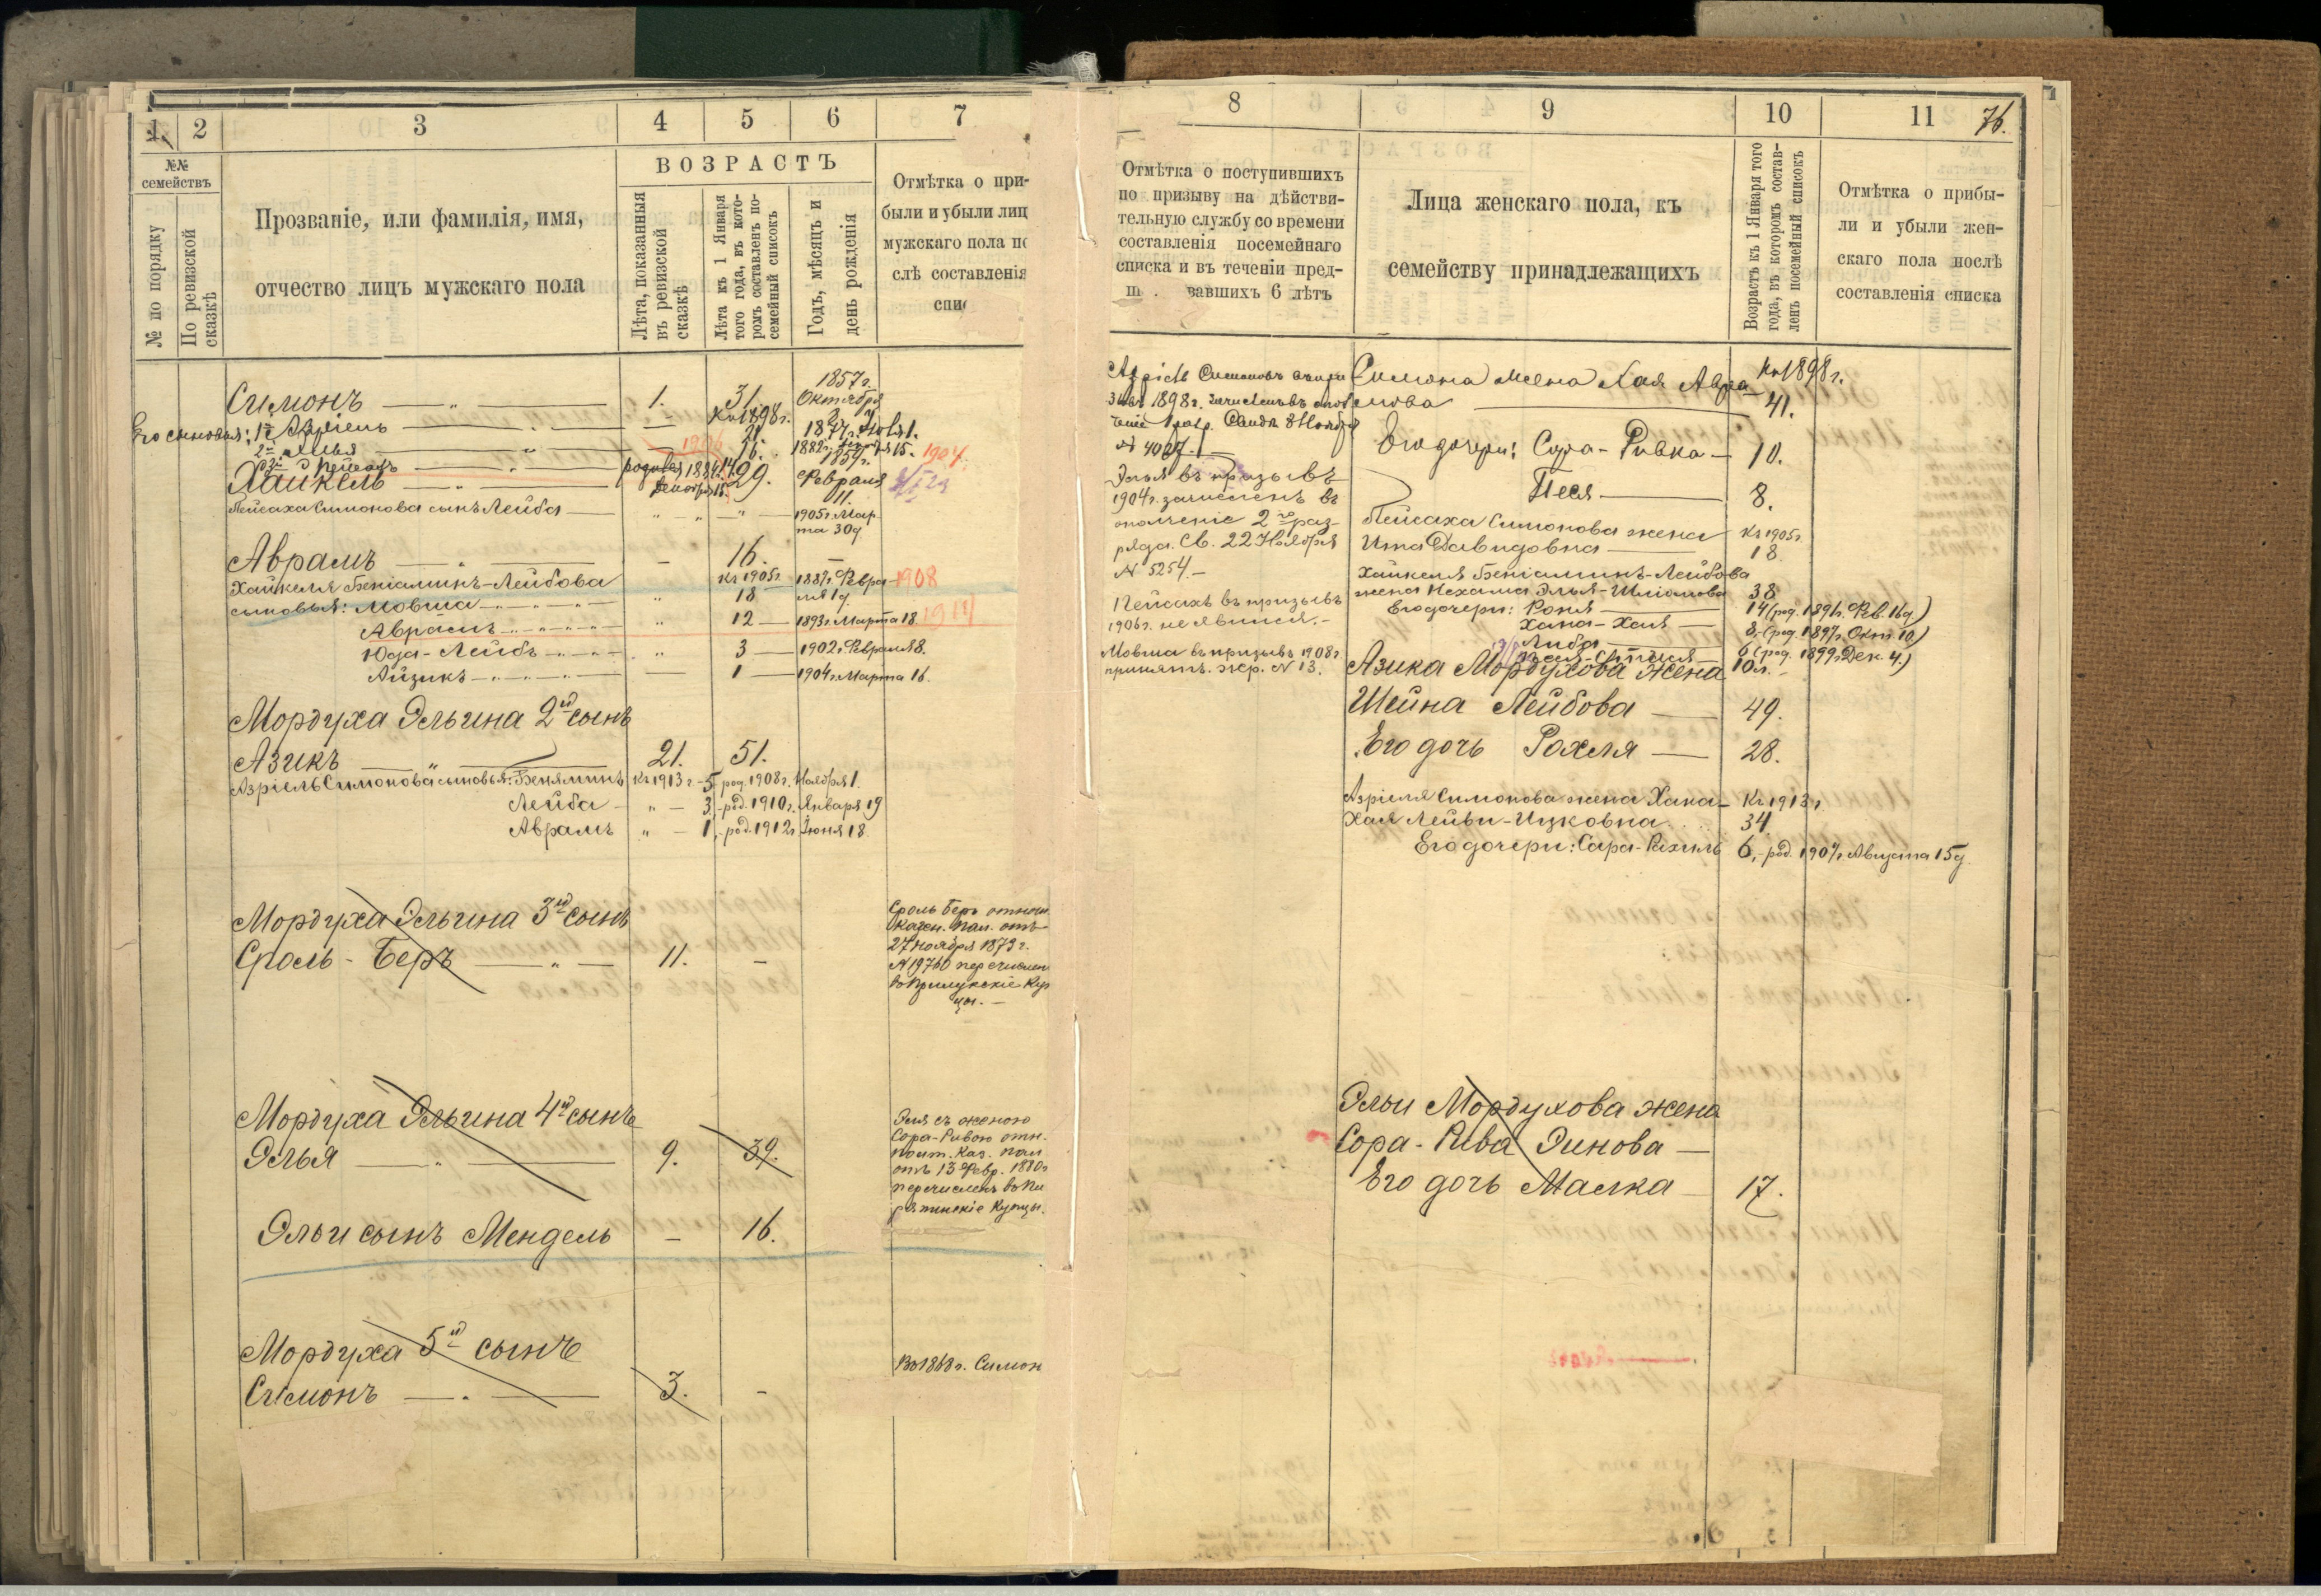 1
2
3
4
5
6
7
№№ семействъ
№ по порядку
По ревизской сказкѣ
Прозваніе, или фамилія, имя,
отчество лицъ мужскаго пола
ВОЗРАСТЪ
Лѣта, показанныя
въ ревизской
сказкѣ
Лѣта къ 1 Января
того года, въ кото-
ромъ составленъ по-
семейный списокъ
Годъ, мѣсяцъ и
день рожденія
Отмѣтка о при-
были и убыли лиц
мужскаго пола по
слѣ составленія
спис
Симонъ — " — 1. 31. 1857 г. Октября
Къ 1898 г.
Его сыновья: 1й Азріель — " — 21. 1877 г. Ноя 1.
2й Элья — " — 16. 1882 г. 15. 1904.
3й Пейсахъ родився 1884 г. Декабря 15.
Хайкель — " — 29. 1859 г. Февраля 11.
Пейсаха Симонова сынъ Лейба — " " " — 1905 г. Мар-
та 30 д.
Аврамъ — " — 16. —
Хайкеля Беніаминъ-Лейбова Къ 1905 г. 1887 г. Февра- 1908
сыновья: Мовша — " — " 18 ля 1 д.
Аврамъ — " — " 12 — 1893 г. Марта 18.
Юда-Лейбъ — " — " 3 — 1902 г. Февраля 8.
Айзикъ — " — 1 — 1904 г. Марта 16.
Мордуха Эльина 2й сынъ
Азикъ — " — 21. 51.
Азріель Симонова сыновья: Беняминъ Къ 1913 г. - 5, род. 1908 г. Ноября 1.
Лейба - " - 3, род. 1910 г. Января 19
Аврамъ " - 1, род. 1912 г. Іюня 18.
Мордуха Эльина 3й сынъ
Сроль-Беръ — " — 11. -
Сроль Беръ отнош.
Казен. Пал. отъ
27 ноября 1873 г.
№ 19760 перечислен
въ Прилукскіе Куп
цы. —
Мордуха Эльина 4й сынъ
Элья — " — 9. 39.
Эля съ женою
Сора-Ривою отн.
Полт. Каз. Пал
отъ 13 Февр. 1880 г
перечисленъ въ Пи
рятинскіе Купцы.
Эльи сынъ Мендель - 16.
Мордуха 5й сынъ
Симонъ — " — 3. -
Въ 1868 г. Симон
8
9
10
11
76.
Отмѣтка о поступившихъ
по призыву на дѣйстви-
тельную службу со времени
составленія посемейнаго
списка и въ теченіи пред-
ш вавшихъ 6 лѣтъ
Лица женскаго пола, къ
семейству принадлежащихъ
Возрастъ къ 1 Января того
года, въ которомъ состав-
ленъ посемейный списокъ
Отмѣтка о прибы-
ли и убыли жен-
скаго пола послѣ
составленія списка
Азріель Симоновъ въ при
зывъ 1898 г. зачисленъ въ опол
ченіе 1 разр. 8 Ноября
№ 4007.
Элья въ призывъ
1904 г. зачисленъ въ
ополченіе 2го раз-
ряда. Св. 22 Ноября
№ 5254. —
Пейсахъ въ призывъ
1906 г. не явился. —
Мовша въ призывъ 1908 г.
принятъ. жр. № 13.
Симона жена Хая Авра- Къ 1898 г.
мова — 41.
Его дочери: Сора-Ривка — 10.
Песя — 8.
Пейсаха Симонова жена Къ 1905 г.
Ита Давидовна — 18
Хайкеля Беніаминъ-Лейбова
жена Нехама Элья-Шліомова 38
Его дочери: Роня — 14 (род. 1891 г. Фев. 16 д)
Хана-Хая — 8, (род. 1897 г. Окт. 10)
Либа — 6 (род. 1899 г. Дек. 4.)
Азика Мордухова жена 10 л. -
Шейна Лейбова — 49.
Его дочь Рохля — 28.
Азріеля Симонова жена Хана- Къ 1913 г.
Хая Лейви-Ицковна 34
Его дочери: Сара-Рахиль 6, род. 1907 г. Августа 15 д.
Эльи Мордухова жена
Сора-Рива Эинова —
Его дочь Малка — 17.